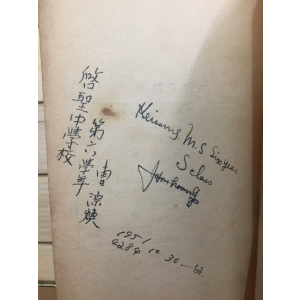 啓聖中學校
第六學年 曺 煥
Keisung. M.S Six year
S class
1951 10.30
4284